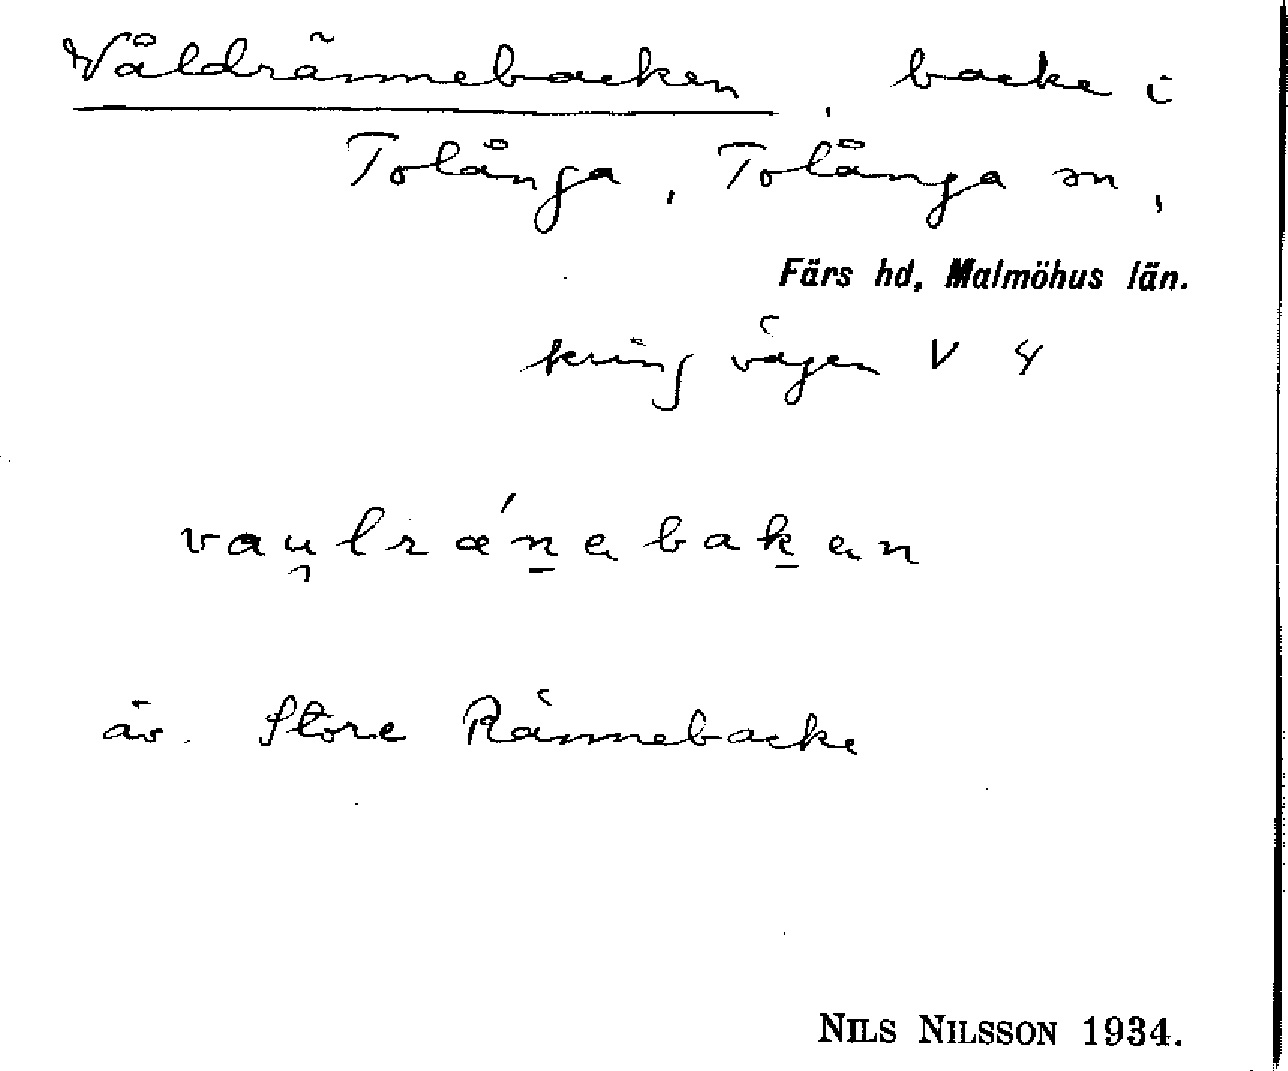 Våldrännebacken, backe i
Tolånga, Tolånga sn,
Färs hd, Malmöhus län.
kring vägen V 4
vau̯lrǽn̲ebak̲en
äv. Store Rännebacke
NILS NILSSON 1934.